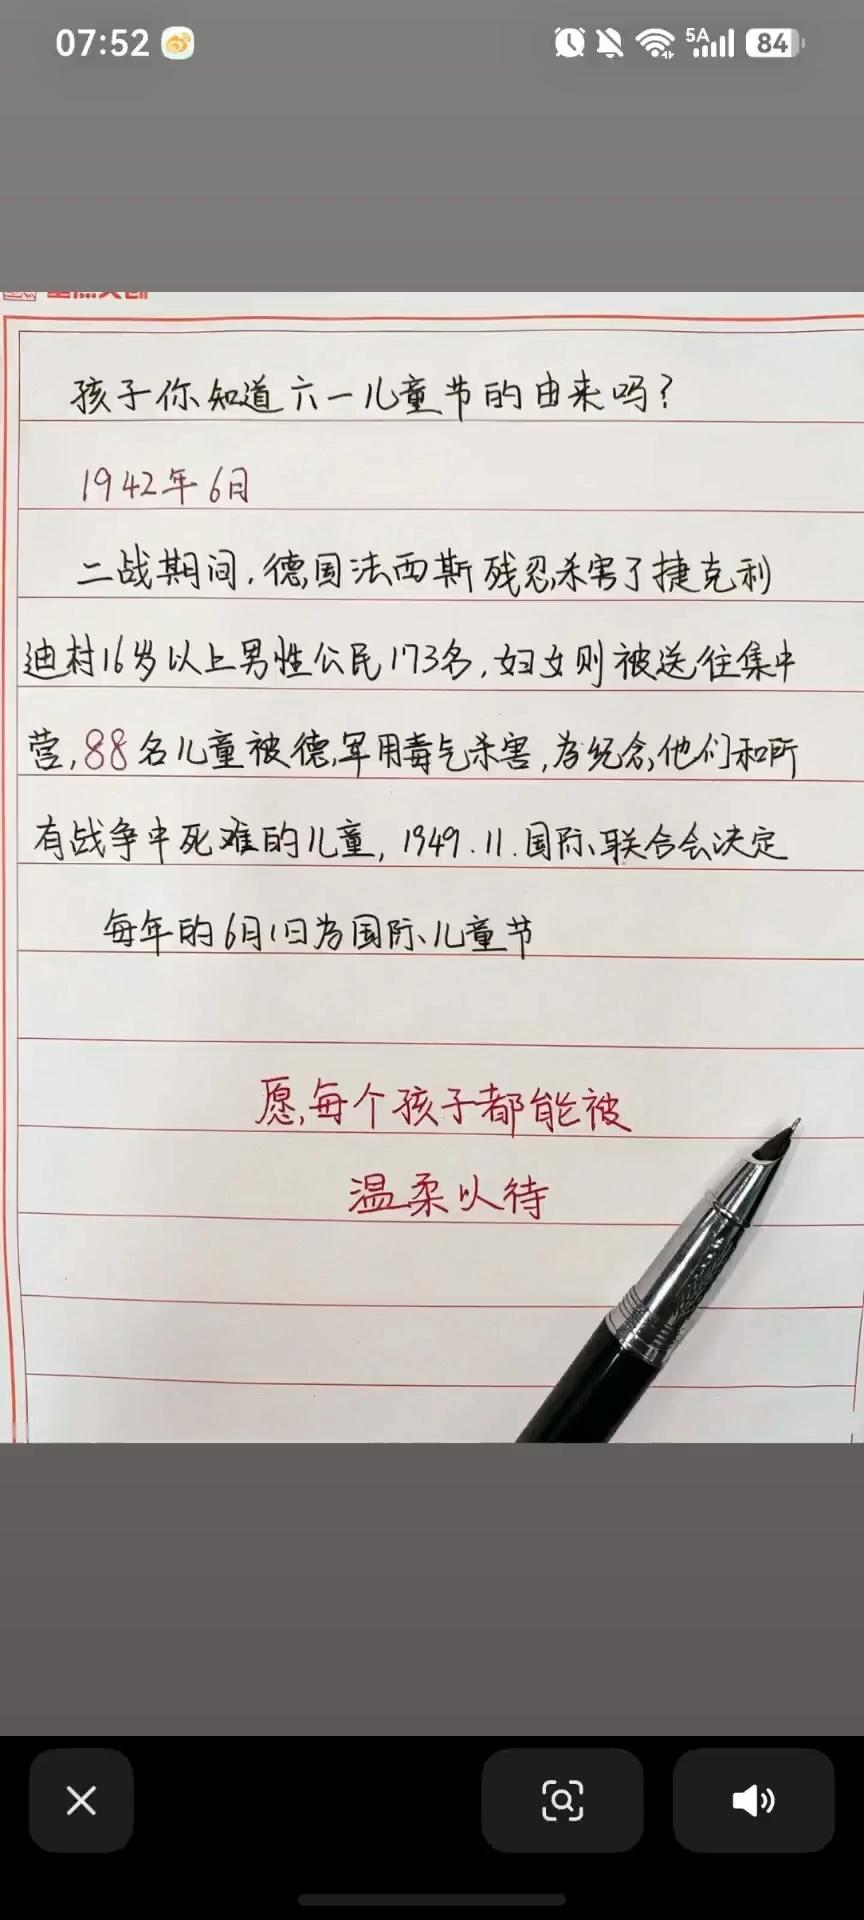 07:52
5A
84
孩子你知道六一儿童节的由来吗？
1942年6月
二战期间，德国法西斯残忍杀害了捷克利
迪村16岁以上男性公民173名，妇女则被送往集中
营，88名儿童被德军用毒气杀害，为纪念他们和所
有战争中死难的儿童，1949.11.国际联合会决定
每年的6月1日为国际儿童节
愿每个孩子都能被
温柔以待